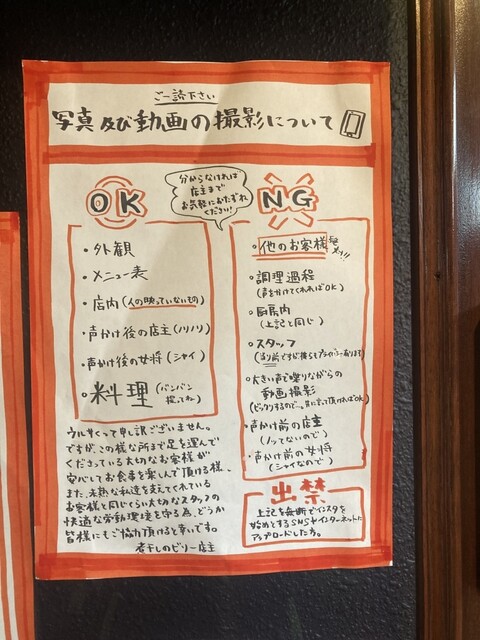 ご一読下さい
写真及び動画の撮影について
分からなければ
店主まで
お気軽におたずね
ください!
OK
・外観
・メニュー表
・店内(人の映っていないもの)
・声かけ後の店主(ノリノリ)
・声かけ後の女将(シャイ)
・料理(バンバン
撮ってね)
NG
・他のお客様
・調理過程
(声をかけてくれればOK)
・厨房内
(上記と同じ)
・スタッフ
(当り前ですが彼らもプライバシー有ります)
・大きい声で喋りながらの
動画撮影
(ビックリするので…。先に言って頂ければOK)
・声かけ前の店主
(ノッてないので)
・声かけ前の女将
(シャイなので)
ウルサくって申し訳ございません。
ですが、この様な所まで足を運んで
くださっている大切なお客様が
安心してお食事を楽しんで頂ける様、
また、未熟な私達を支えてくれている
お客様と同じくらい大切なスタッフの
快適な労働環境を守る為、どうか
皆様にもご協力頂けると幸いです。
煮干しのビリー店主
出禁
上記を無断でインスタを
始めとするSNSやインターネットに
アップロードした方。